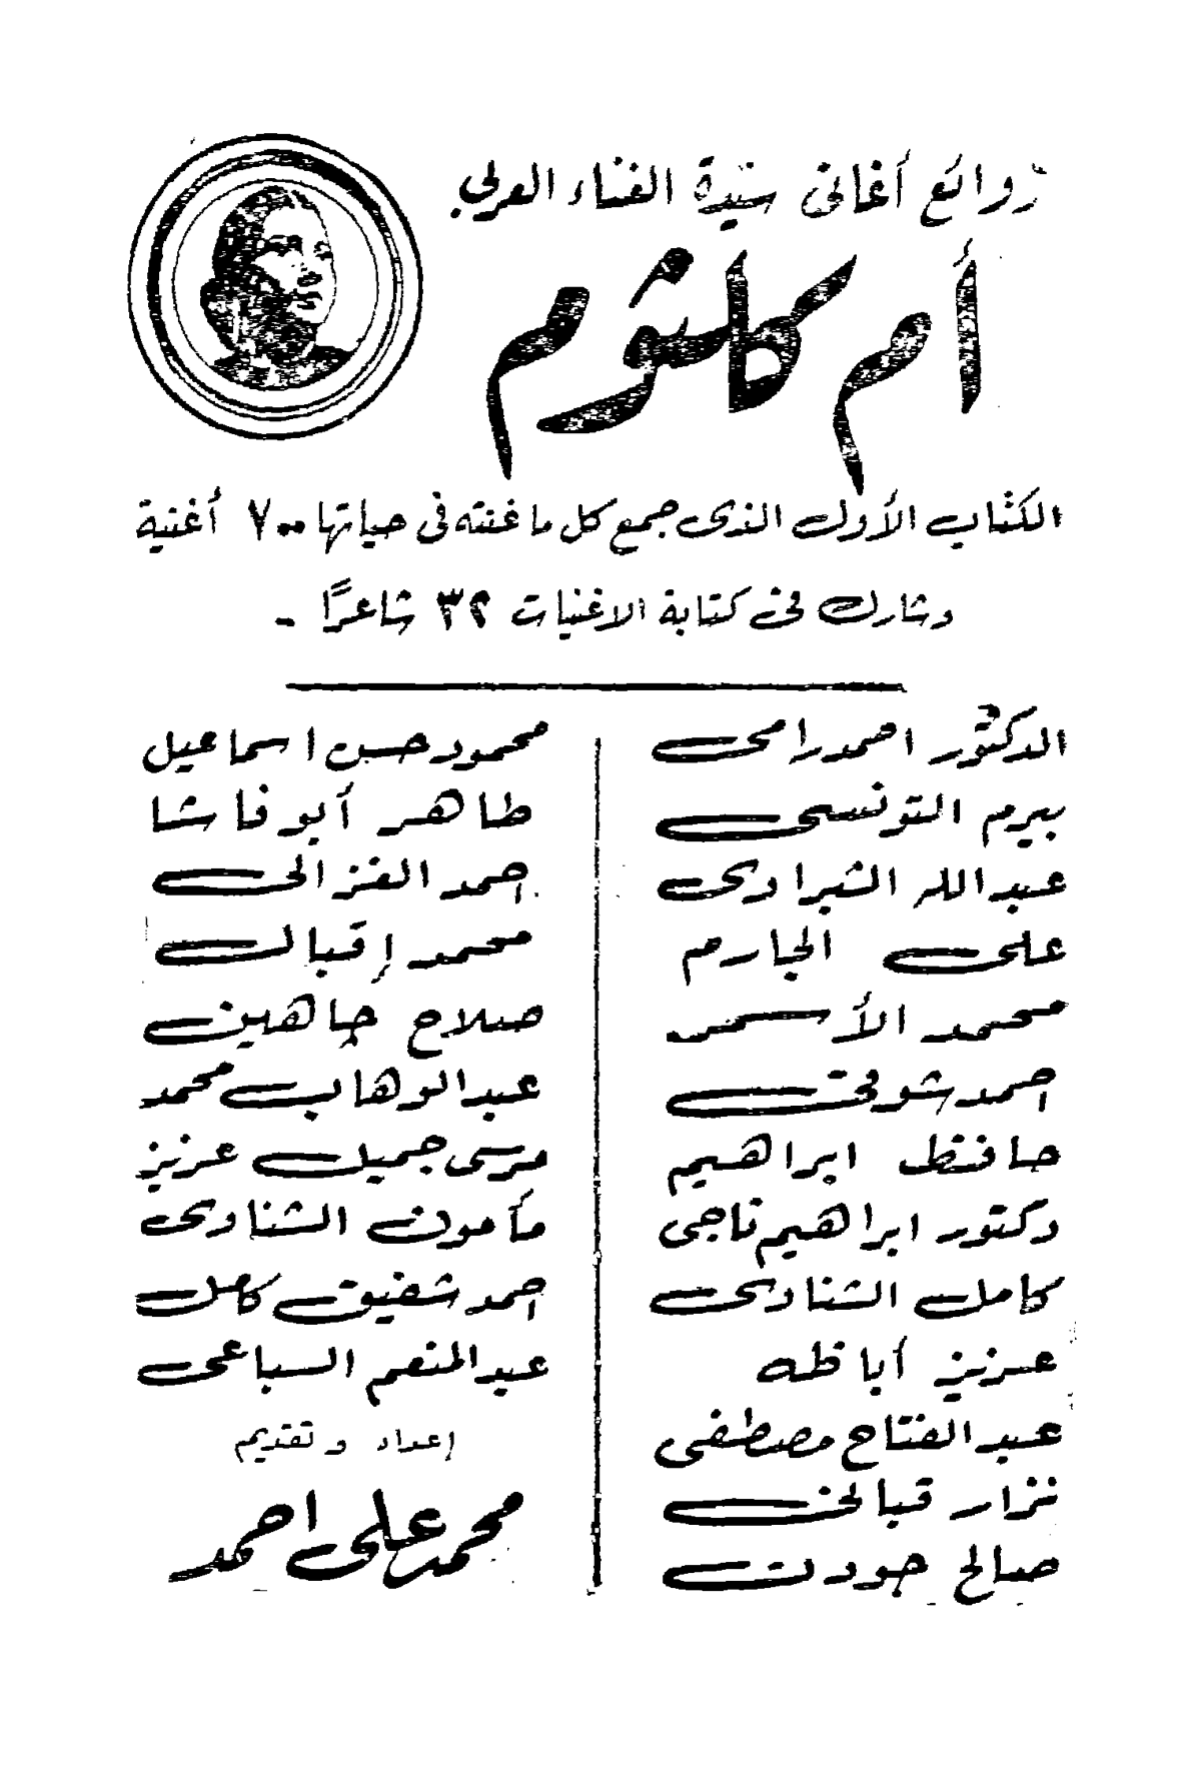 روائع أغانى سيدة الغناء العربي
أم كلثوم
الكتاب الأول الذى جمع كل ما غنته فى حياتها ٧٠٠ أغنية
وشارك فى كتابة الاغنيات ٣٢ شاعرًا -
الدكتور احمد رامى
بيرم التونسى
عبد الله الشبراوى
على الجارم
محمد الأسمر
احمد شوقى
حافظ ابراهيم
دكتور ابراهيم ناجى
كامل الشناوى
عزيز أباظه
عبد الفتاح مصطفى
نزار قبانى
صالح جودت
محمود حسن اسماعيل
طاهر أبو فاشا
احمد الغزالى
محمد إقبال
صلاح جاهين
عبد الوهاب محمد
مرسى جميل عزيز
مأمون الشناوى
احمد شفيق كامل
عبد المنعم السباعى
إعداد وتقديم
محمد على احمد